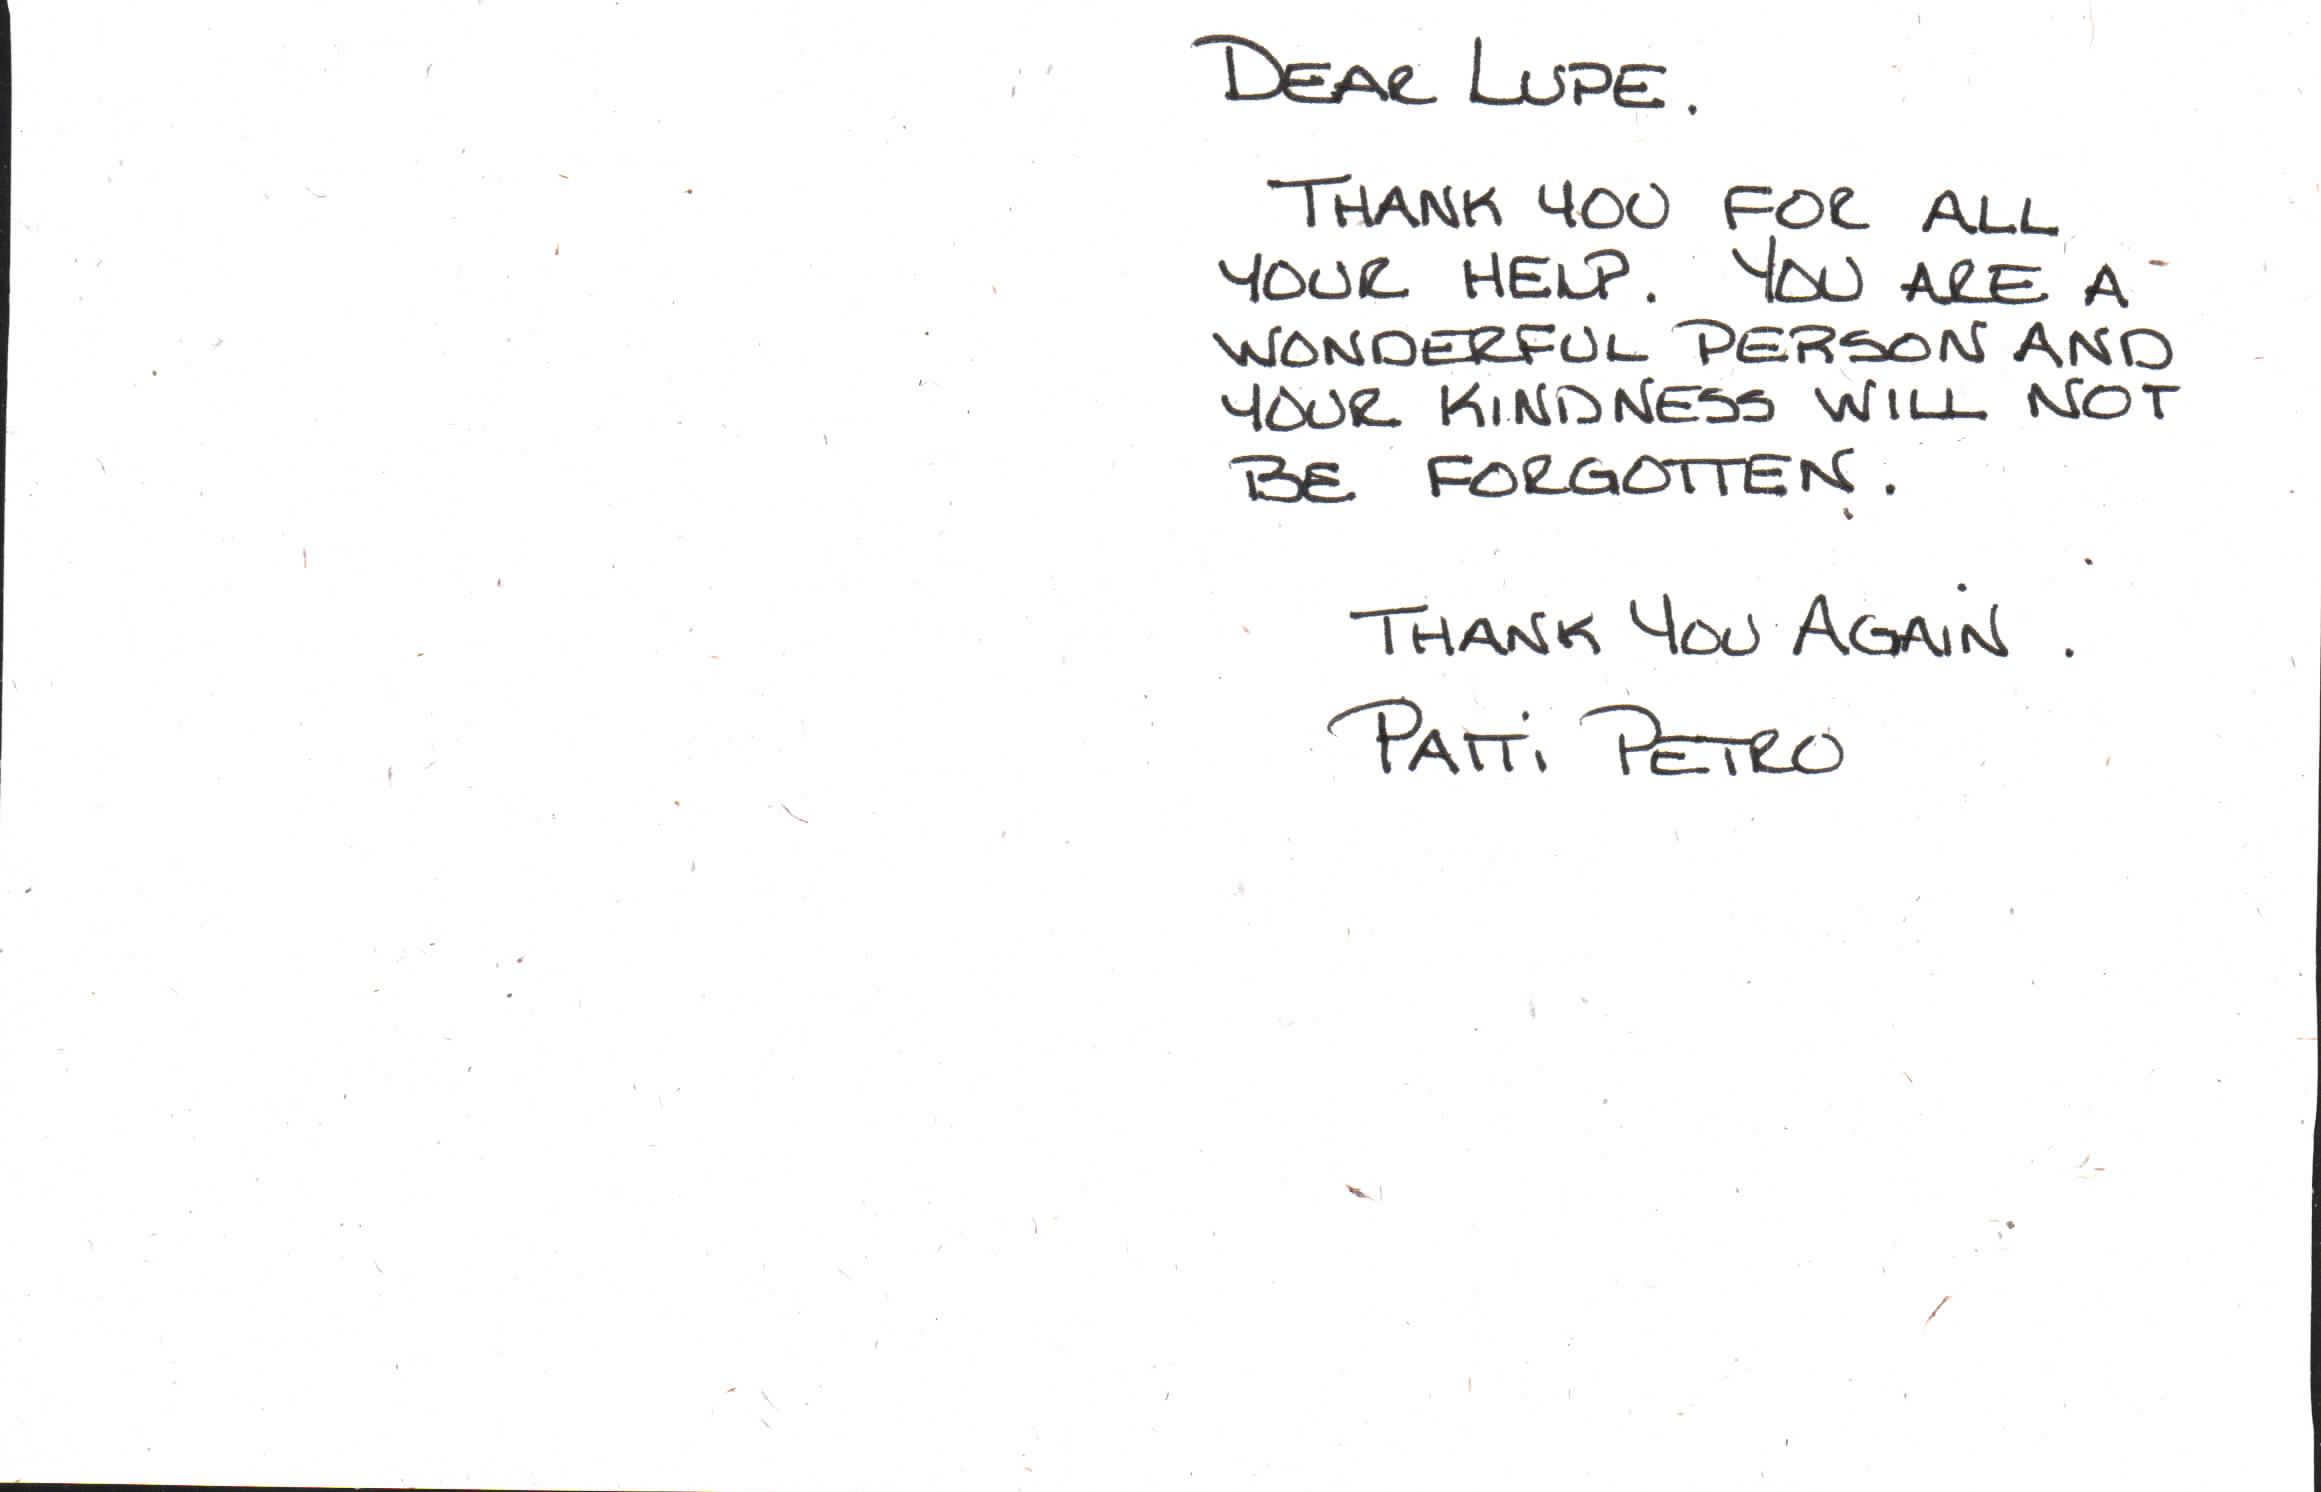 DEAR LUPE.
THANK YOU FOR ALL
YOUR HELP. YOU ARE A
WONDERFUL PERSON AND
YOUR KINDNESS WILL NOT
BE FORGOTTEN.
THANK YOU AGAIN.
PATTi PETRO